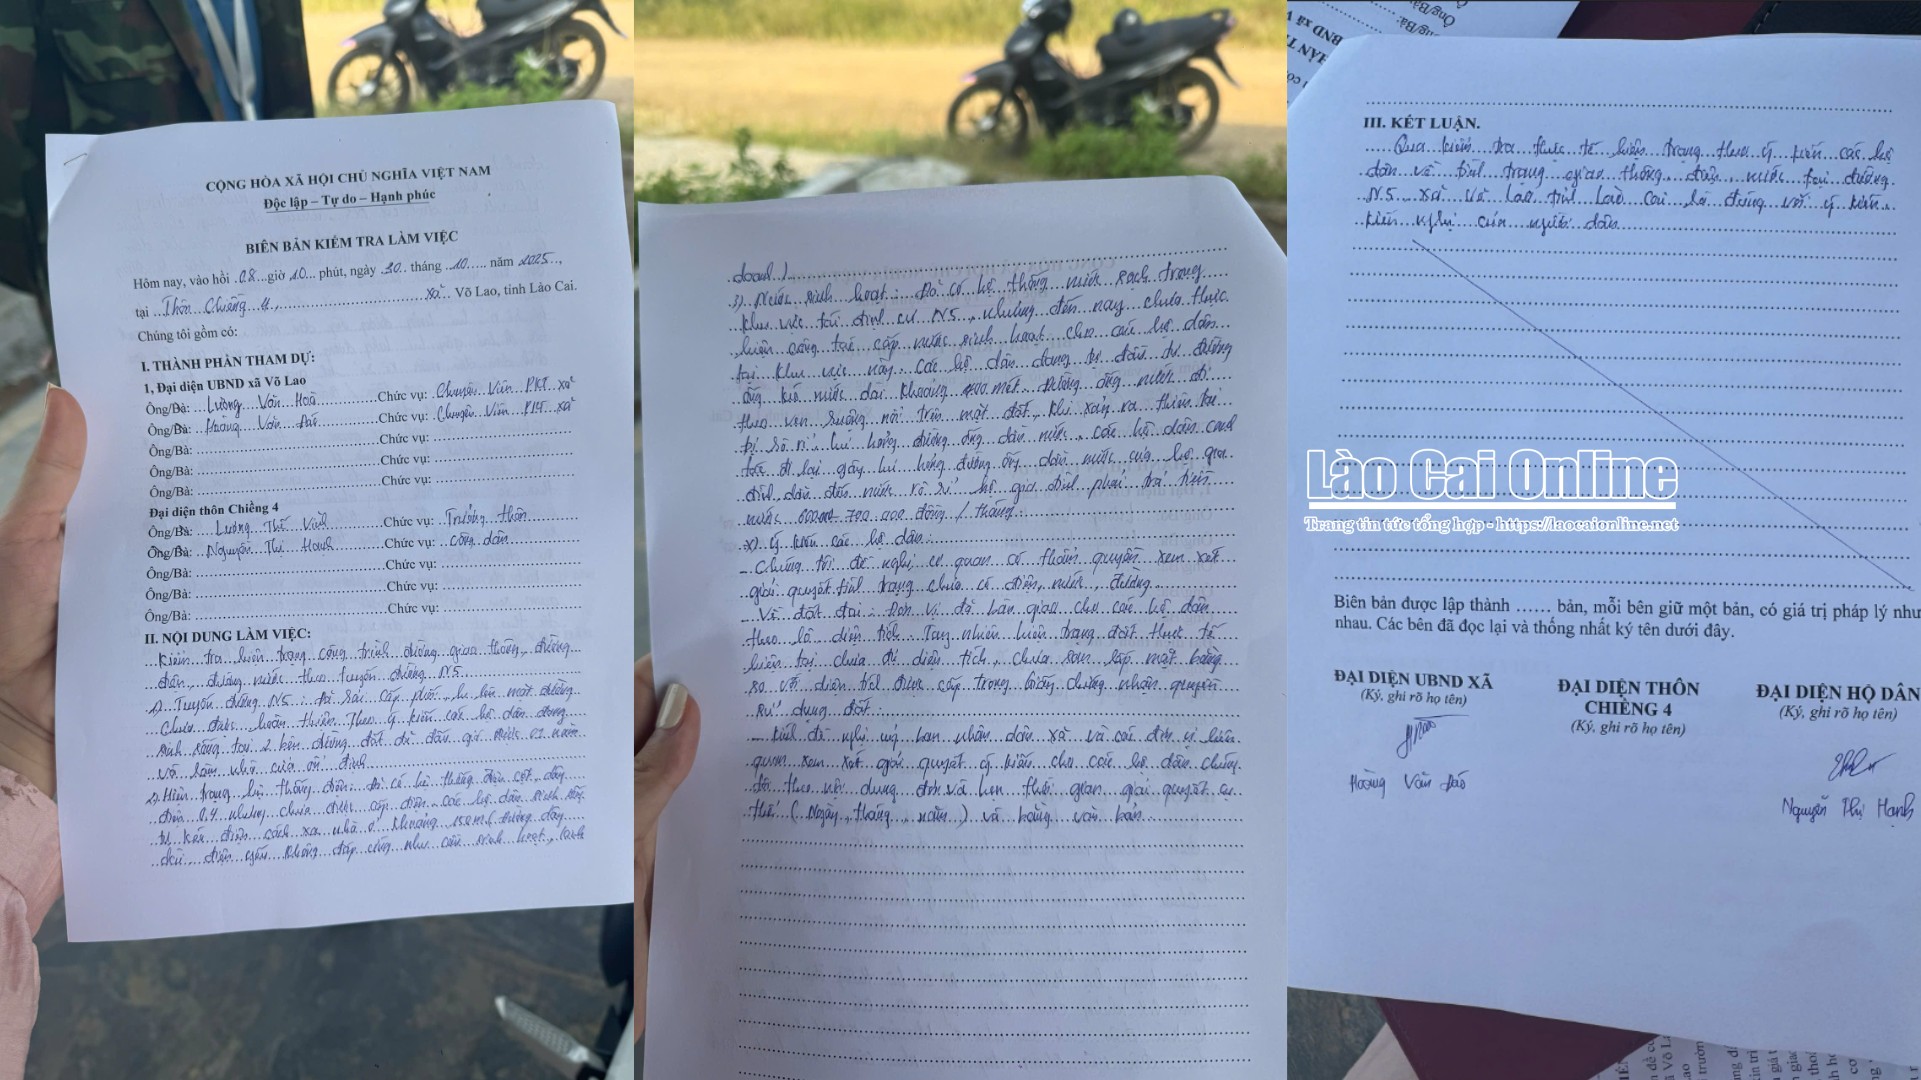 CỘNG HÒA XÃ HỘI CHỦ NGHĨA VIỆT NAM
Độc lập – Tự do – Hạnh phúc
BIÊN BẢN KIỂM TRA LÀM VIỆC
Hôm nay, vào hồi 08 giờ 10 phút, ngày 30 tháng 10 năm 2025,
tại Thôn Chiềng 4, xã Võ Lao, tỉnh Lào Cai.
Chúng tôi gồm có:
I. THÀNH PHẦN THAM DỰ:
1, Đại diện UBND xã Võ Lao
Ông/Bà: Lương Văn Hoà Chức vụ: Chuyên Viên PKT xã
Ông/Bà: Hoàng Văn Đáo Chức vụ: Chuyên Viên PKT xã
Ông/Bà: Chức vụ:
Ông/Bà: Chức vụ:
Ông/Bà: Chức vụ:
Đại diện thôn Chiềng 4
Ông/Bà: Lương Thế Vinh Chức vụ: Trưởng thôn
Ông/Bà: Nguyễn Thị Hạnh Chức vụ: công dân
Ông/Bà: Chức vụ:
Ông/Bà: Chức vụ:
Ông/Bà: Chức vụ:
II. NỘI DUNG LÀM VIỆC:
Kiểm tra hiện trạng công trình đường giao thông, đường
điện, đường nước theo tuyến đường N5.
1) Tuyến đường N5: đã rải cấp phối lu lèn mặt đường
chưa được hoàn thiện. Theo ý kiến các hộ dân đang
sinh sống tại 2 bên đường đất đã đấu giá được 02 năm
và làm nhà cửa ổn định
2) Hiện trạng hệ thống điện: Đã có hệ thống điện cột, dây
điện 0,4 nhưng chưa được cấp điện các hộ dân sinh sống
tự kéo điện cách xa nhà ở khoảng 150m (đường dây
dài, điện yếu không đáp ứng nhu cầu sinh hoạt, kinh
doanh)
3) Nước sinh hoạt: Đã có hệ thống nước sạch trong
khu vực tái định cư N5, nhưng đến nay chưa thực
hiện công tác cấp nước sinh hoạt cho các hộ dân
tại khu vực này. Các hộ dân đang tự đầu tư đường
ống kéo nước dài khoảng 400 mét. Đường ống nước đi
theo ven suông nổi trên mặt đất, khi xảy ra thiên tai
bị sò rỉ, hư hỏng đường ống dẫn nước, các hộ dân canh
tác đi lại gây hư hỏng đường ống dẫn nước của hộ gia
đình dẫn đến nước rò rỉ hộ gia đình phải trả tiền
nước 700.000 đồng / tháng.
x) Ý kiến các hộ dân:
- Chúng tôi đề nghị cơ quan có thẩm quyền xem xét
giải quyết tình trạng chưa có điện, nước, đường.
Về đất đai: Đơn vị đã bàn giao cho các hộ dân
theo lô diện tích. Tuy nhiên hiện trạng đất thực tế
hiện tại chưa đủ diện tích, chưa san lấp mặt bằng
so với diện tích được cấp trong giấy chứng nhận quyền
sử dụng đất.
- Kính đề nghị uỷ ban nhân dân xã và các đơn vị liên
quan xem xét giải quyết ý kiến cho các hộ dân chúng
tôi theo nội dung đơn và hẹn thời gian giải quyết cụ
thể (Ngày, tháng, năm) và bằng văn bản.
III. KẾT LUẬN.
Qua kiểm tra thực tế hiện trạng theo ý kiến các hộ
dân về tình trạng giao thông, điện, nước tại đường
N5 xã Võ Lao tỉnh Lào Cai là đúng với ý kiến
kiến nghị của người dân
Lào Cai Online
Trang tin tức tổng hợp - https://laocaionline.net
Biên bản được lập thành ...... bản, mỗi bên giữ một bản, có giá trị pháp lý như
nhau. Các bên đã đọc lại và thống nhất ký tên dưới đây.
ĐẠI DIỆN UBND XÃ
(Ký, ghi rõ họ tên)
Hoàng Văn Đáo
ĐẠI DIỆN THÔN
CHIỀNG 4
(Ký, ghi rõ họ tên)
ĐẠI DIỆN HỘ DÂN
(Ký, ghi rõ họ tên)
Nguyễn Thị Hạnh